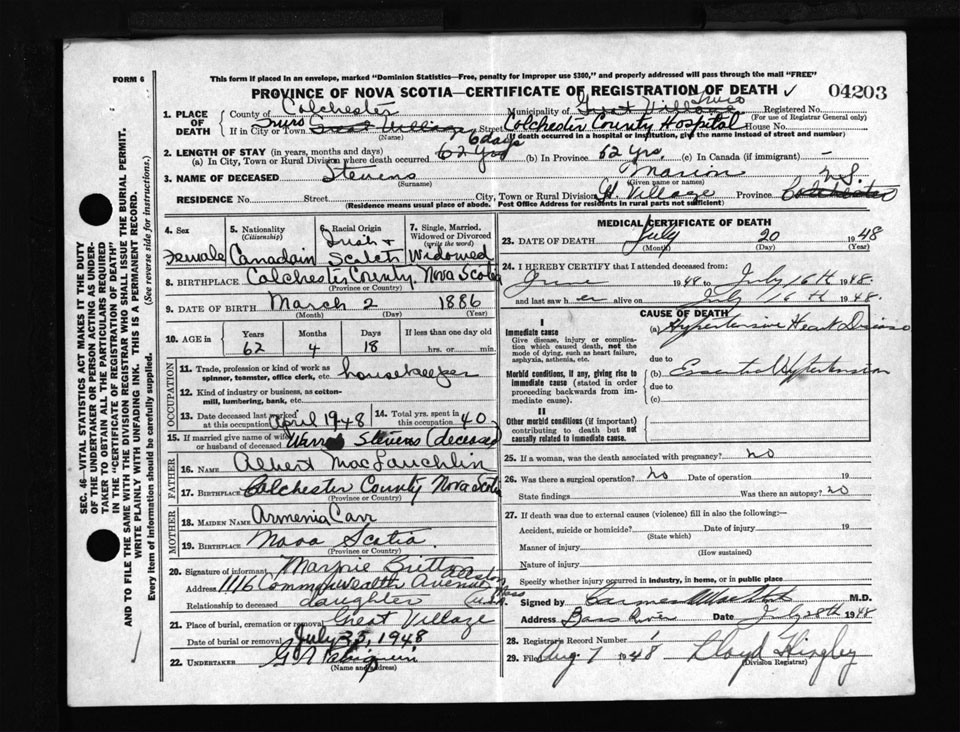 FORM 6
This form if placed in an envelope, marked "Dominion Statistics—Free, penalty for improper use $300," and properly addressed will pass through the mail "FREE"
PROVINCE OF NOVA SCOTIA—CERTIFICATE OF REGISTRATION OF DEATH ✓ 04203
SEC. 46—VITAL STATISTICS ACT MAKES IT THE DUTY
OF THE UNDERTAKER OR PERSON ACTING AS UNDER-
TAKER TO OBTAIN ALL THE PARTICULARS REQUIRED
IN THE "CERTIFICATE OF REGISTRATION OF DEATH"
AND TO FILE THE SAME WITH THE DIVISION REGISTRAR WHO SHALL ISSUE THE BURIAL PERMIT.
WRITE PLAINLY WITH UNFADING INK. THIS IS A PERMANENT RECORD.
Every item of information should be carefully supplied. (See reverse side for instructions.)
1. PLACE OF DEATH
County of Colchester Municipality of Great Village Truro Registered No.
(For use of Registrar General only)
If in City or Town Truro Great Village Street Colchester County Hospital House No.
(Name) (If death occurred in a hospital or institution, give the name instead of street and number)
2. LENGTH OF STAY (in years, months and days)
(a) In City, Town or Rural Division where death occurred 62 yrs 6 days (b) In Province 62 yrs. (c) In Canada (if immigrant) —
3. NAME OF DECEASED Stevens Marion
(Surname) (Given name or names)
RESIDENCE No. Street City, Town or Rural Division Gt. Village Province Colchester N.S.
(Residence means usual place of abode. Post Office Address for residents in rural parts not sufficient)
4. Sex Female
5. Nationality (Citizenship) Canadain
6. Racial Origin Irish + Scotch
7. Single, Married, Widowed or Divorced (write the word) Widowed
8. BIRTHPLACE Colchester County, Nova Scotia
(Province or Country)
9. DATE OF BIRTH March 2 1886
(Month) (Day) (Year)
10. AGE in Years 62 Months 4 Days 18 If less than one day old hrs. or min.
OCCUPATION
11. Trade, profession or kind of work as spinner, teamster, office clerk, etc. housekeeper
12. Kind of industry or business, as cotton-mill, lumbering, bank, etc.
13. Date deceased last worked at this occupation April 1948
14. Total yrs. spent in this occupation 40
15. If married give name of wife or husband of deceased Stevens (deceased)
FATHER
16. NAME Albert MacLauchlin
17. BIRTHPLACE Colchester County Nova Scotia
(Province or Country)
MOTHER
18. MAIDEN NAME Armenia Carr
19. BIRTHPLACE Nova Scotia.
(Province or Country)
20. Signature of informant Marjorie Britton
Address 1116 Commonwealth Avenue Boston Mass U.S.A.
Relationship to deceased daughter
21. Place of burial, cremation or removal Great Village
Date of burial or removal July 23, 1948
22. UNDERTAKER
(Name and address)
MEDICAL CERTIFICATE OF DEATH
23. DATE OF DEATH July 20 1948
(Month) (Day) (Year)
24. I HEREBY CERTIFY that I attended deceased from:
June 1948 to July 16th 1948.
and last saw her alive on July 16th 1948.
CAUSE OF DEATH
I
Immediate cause
Give disease, injury or complication which caused death, not the mode of dying, such as heart failure, asphyxia, asthenia, etc.
(a) Hypertensive Heart Disease
due to
Morbid conditions, if any, giving rise to immediate cause (stated in order proceeding backwards from immediate cause).
(b) Essential Hypertension
due to
(c)
II
Other morbid conditions (if important) contributing to death but not causally related to immediate cause.
25. If a woman, was the death associated with pregnancy? no
26. Was there a surgical operation? no Date of operation 19
State findings Was there an autopsy? no
27. If death was due to external causes (violence) fill in also the following:—
Accident, suicide or homicide? Date of injury 19
(State which)
Manner of injury
(How sustained)
Nature of injury
Specify whether injury occurred in industry, in home, or in public place
Signed by M.D.
Address Bass River Date July 28th 1948
28. Registrar's Record Number 1
29. Filed Aug 7 1948 Lloyd Hingley
(Division Registrar)